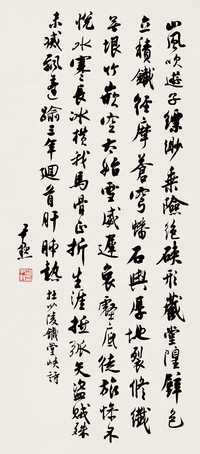 山風吹遊子縹緲乘險絕硤形藏堂隍壁色
立積鐵徑摩蒼穹蟠石與厚地裂修纖
無垠竹嵌空太始雪威遲哀壑底徒旅慘不
悅水寒長冰橫我馬骨正折生涯抵弧矢盜賊殊
未滅飄蓬踰三年迴首肝肺熱 杜少陵鐵堂峽詩
尹默